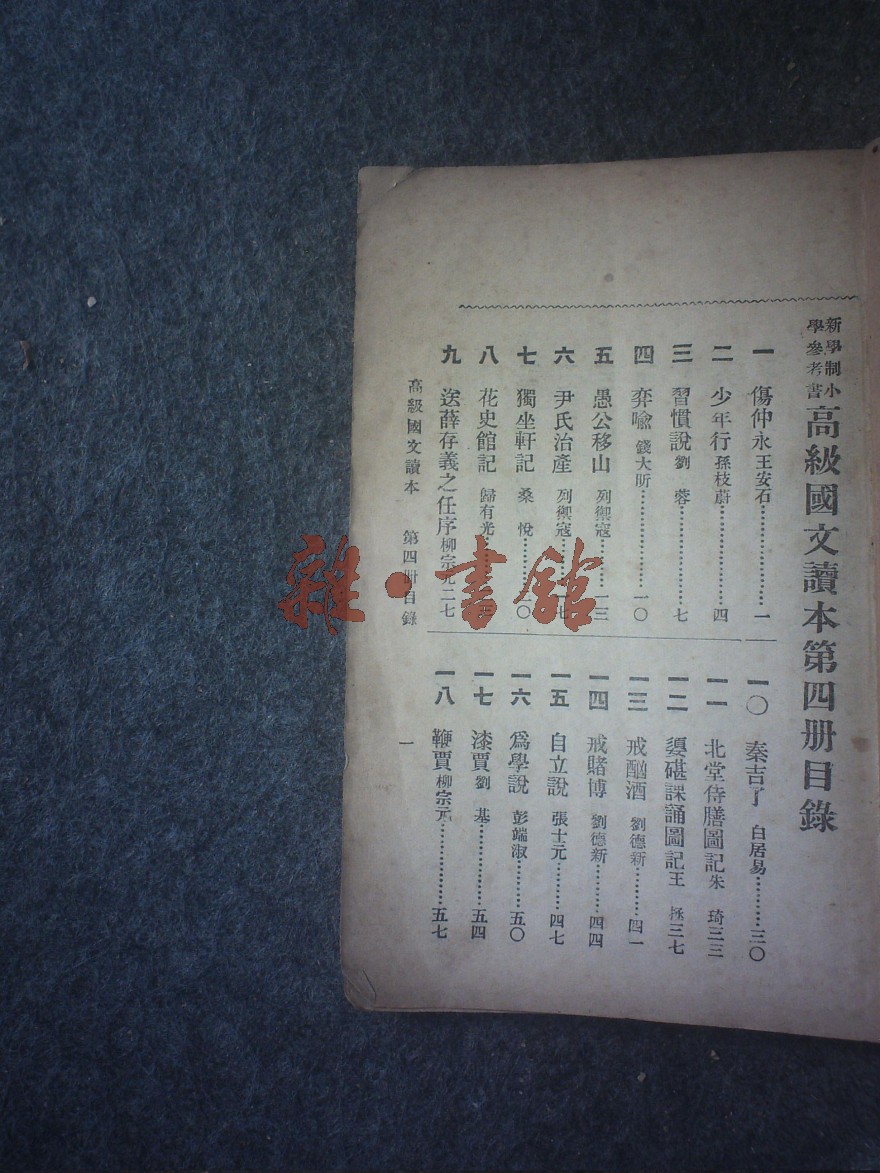 新學制小
學參考書
高級國文讀本第四册目錄
一 傷仲永 王安石…………一
二 少年行 孫枝蔚…………四
三 習慣說 劉 蓉…………七
四 弈喩 錢大昕…………一〇
五 愚公移山 列禦寇…………一三
六 尹氏治產 列禦寇…………七
七 獨坐軒記 桑 悅…………二〇
八 花史館記 歸有光
九 送薛存義之任序 柳宗元 二七
一〇 秦吉了 白居易…………三〇
一一 北堂侍膳圖記 朱 琦 三三
一二 媭碪課誦圖記 王 拯 三七
一三 戒酗酒 劉德新…………四一
一四 戒賭博 劉德新…………四四
一五 自立說 張士元…………四七
一六 爲學說 彭端淑…………五〇
一七 漆賈 劉 基…………五四
一八 鞭賈 柳宗元…………五七
高級國文讀本 第四册目錄 一
雜·書館